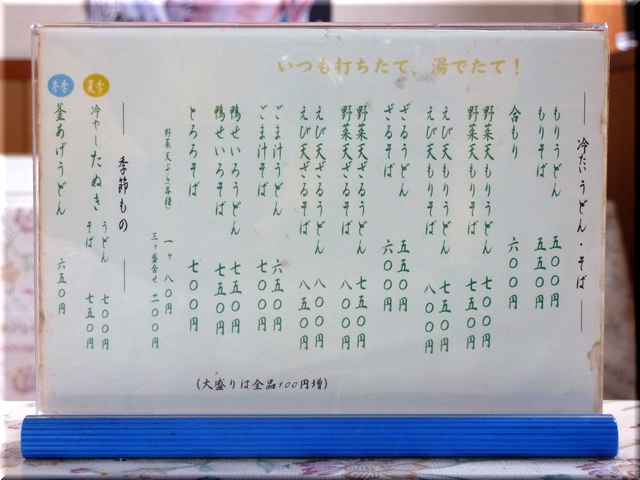 いつも打ちたて、湯でたて！
冷たいうどん・そば
もりうどん 五〇〇円
もりそば 五五〇円
合もり 六〇〇円
野菜天もりうどん 七〇〇円
野菜天もりそば 七五〇円
えび天もりうどん 七五〇円
えび天もりそば 八〇〇円
ざるうどん 五五〇円
ざるそば 六〇〇円
野菜天ざるうどん 七五〇円
野菜天ざるそば 八〇〇円
えび天ざるうどん 八〇〇円
えび天ざるそば 八五〇円
ごま汁うどん 六五〇円
ごま汁そば 七〇〇円
鴨せいろうどん 七五〇円
鴨せいろそば 七五〇円
とろろそば 七〇〇円
野菜天ぷら(各種) 一ヶ 八〇円
三ヶ盛合せ 二〇〇円
季節もの
夏季
冷やしたぬき うどん 七〇〇円
そば 七五〇円
冬季
釜あげうどん 六五〇円
(大盛りは全品100円増)